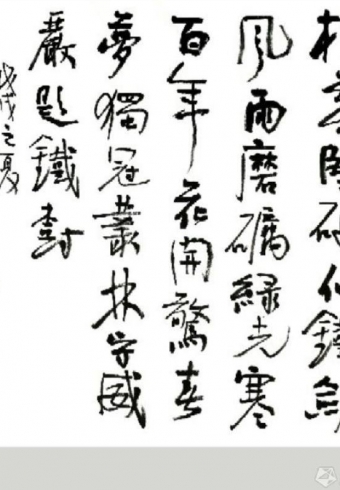 似劍
風雨磨礪綠光寒
百年花開驚春
夢獨冠叢林守威
嚴題鐵樹
戊戌之夏